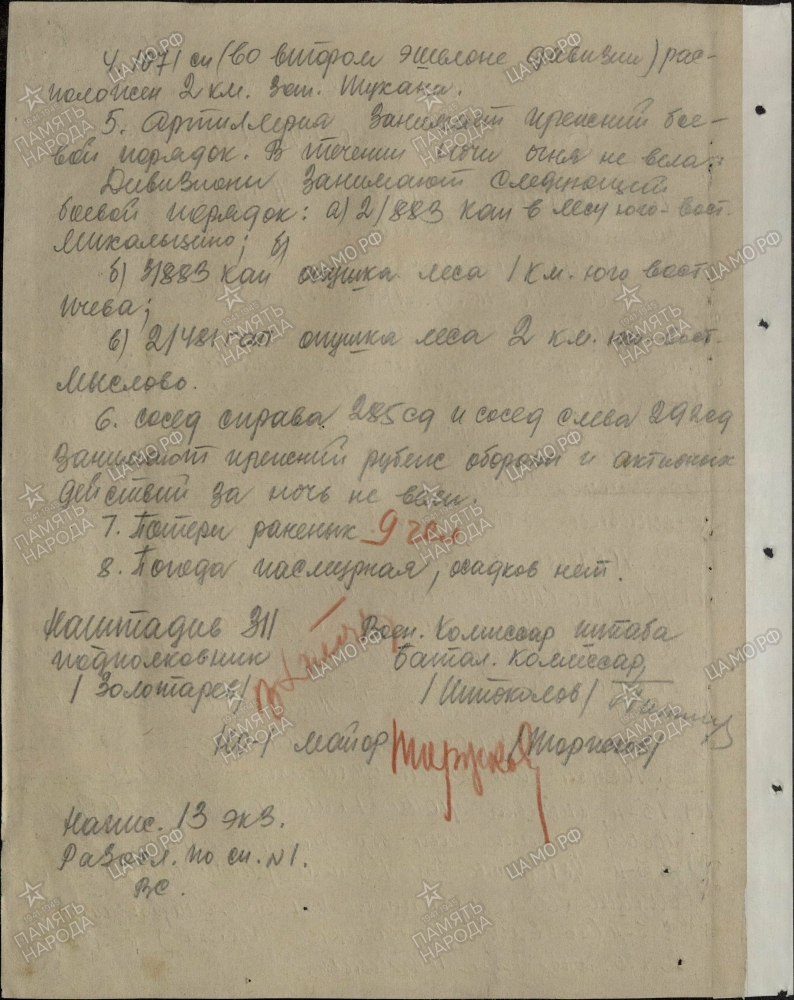 4. 1071 сп (во втором эшелоне дивизии) рас-
положен 2 км. зап. Шукани.
5. Артиллерия занимает прежний бое-
вой порядок. В течении ночи огня не вела.
Дивизионы занимают следующий
боевой порядок: а) 2/883 кап в лесу юго-вост.
Микальцино; б)
б) 3/883 кап опушка леса 1 км. юго вост
Ичева;
в) 2/481 гап опушка леса 2 км. юго-вост.
Мыслово.
6. Сосед справа 285сд и сосед слева 292сд
занимают прежний рубеж обороны и активных
действий за ночь не вели.
7. Потери раненых 9 чел
8. Погода пасмурная, осадков нет.
Наштадив 311 Воен. Комиссар штаба
подполковник Батал. Комиссар
/Золотарев/ /Штоколов/
НО-1 майор
Напис. 13 экз.
Разосл. по сп. №1.
ВС.
ПАМЯТЬ НАРОДА
ЦАМО РФ